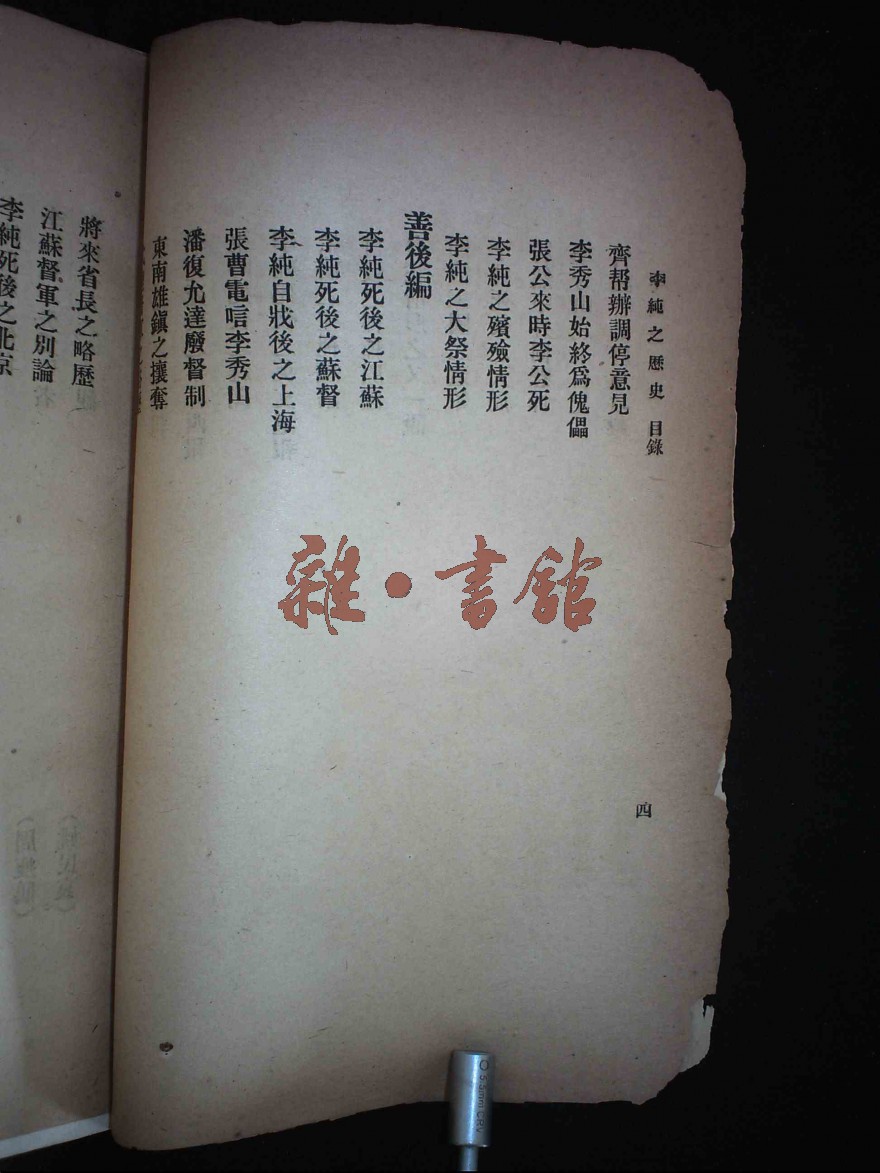 李純之歷史 目錄
四
齊帮辦調停意見
李秀山始終爲傀儡
張公來時李公死
李純之殯殮情形
李純之大祭情形
善後編
李純死後之江蘇
李純死後之蘇督
李純自戕後之上海
張曹電唁李秀山
潘復允達廢督制
東南雄鎭之攘奪
將來省長之略歷
江蘇督軍之別論
李純死後之北京
雜·書館